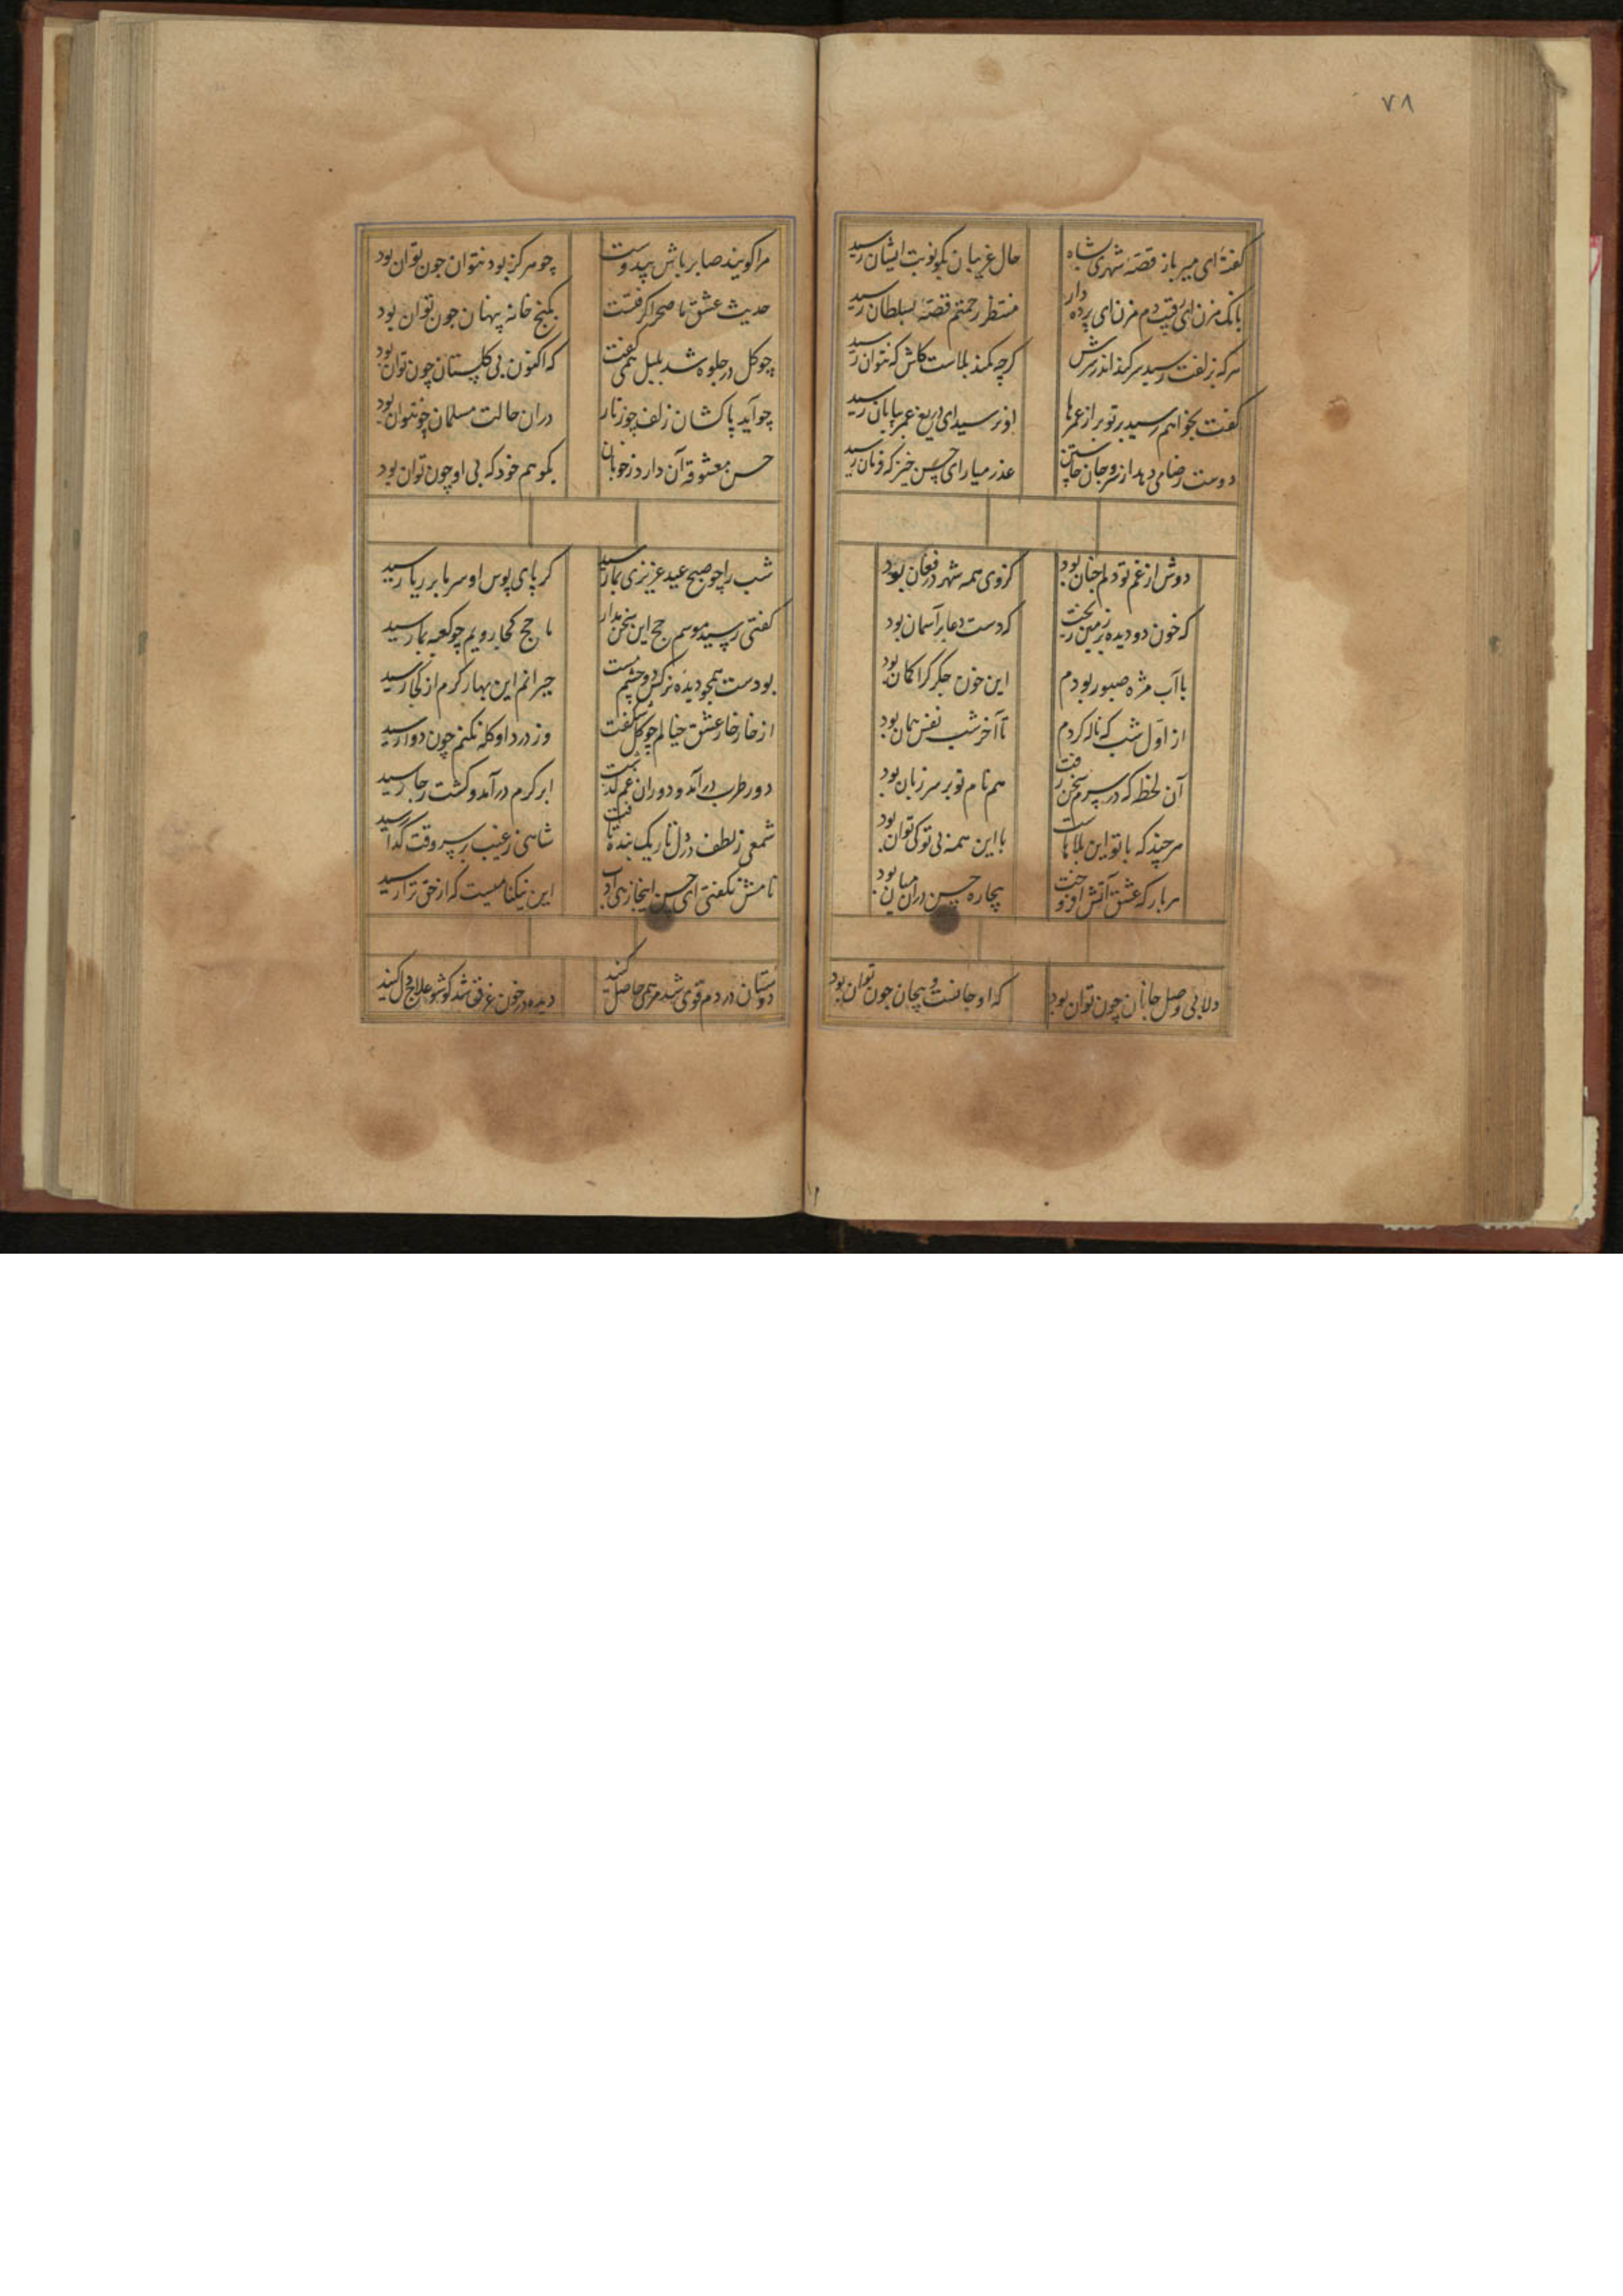 ۷۸
گفتهٔ ای میر باز قصهٔ شهری بشاه حال غریبان بگو نوبت ایشان رسید
بانک مزن ای رقیب دم مزن ای پرده دار منتظر رحمتم قصه بسلطان رسید
هرکه بزلفت رسید سر کند اندر سرش کرچه کمند بلاست کاش که بتوان رسید
کفت بخواهم رسید بر تو براز عمرها او نرسید ای دریغ عمر بپایان رسید
دوست رضا می دهد از سر و جان خاستن عذر میار ای حسن خیز که فرمان رسید
دوش از غم تو دلم بجان بود کزوی همه شهر در فغان بود
که خون دو دیده بر زمین ریخت که دست دعا بر آسمان بود
با آب مژه صبور بودم این خون جگر کرا کمان بود
از اول شب که ناله کردم تا آخر شب نفس همان بود
آن لحظه که در سرم سخن رفت هم نام تو بر سر زبان بود
هرچند که با تو این بلاهاست با این همه بی تو کی توان بود
هر بار که عشق آتش افروخت بیچاره حسن در آن میان بود
دلا بی وصل جانان چون توان بود که او جانست و بیجان چون توان بود
مرا کویند صابر باش بیدوست چو هرکز بود نتوان چون توان بود
حدیث عشق ما صحرا کرفتست بکنج خانه پنهان چون توان بود
چو کل در جلوه شد بلبل همی کفت که اکنون بی کلستان چون توان بود
چو آید پا کشان زلف چو زنار در ان حالت مسلمان چون توان بود
حسن معشوقه آن دارد ز خوبان بکو هم خود که بی او چون توان بود
شب را چو صبح عید عزیزی بما رسید کز پای بوس او سر ما بر ریا رسید
کفتی رسید موسم حج این سخن مدار ما حج کجا رویم چو کعبه بما رسید
بودست همچو دیده نرکس دو چشم مست حیرانم این بهار کرم از کجا رسید
از خار خار عشق خیالم چو کل شکفت وز درد او کله نکنم چون دوا رسید
دور طرب در آمد و دوران غم کذشت ابر کرم در آمد و کشت رجا رسید
شمعی ز لطف در دل تاریک بنده تافت شاهی ز غیب بر سر وقت کدا رسید
نامش نکفتی ای حسن اینجا ز بی ادب این نیکنامیست که از حق ترا رسید
دوستان دردم قوی شد مرهمی حاصل کنید دیده در خون غرق شد کو شو علاج دل کنید